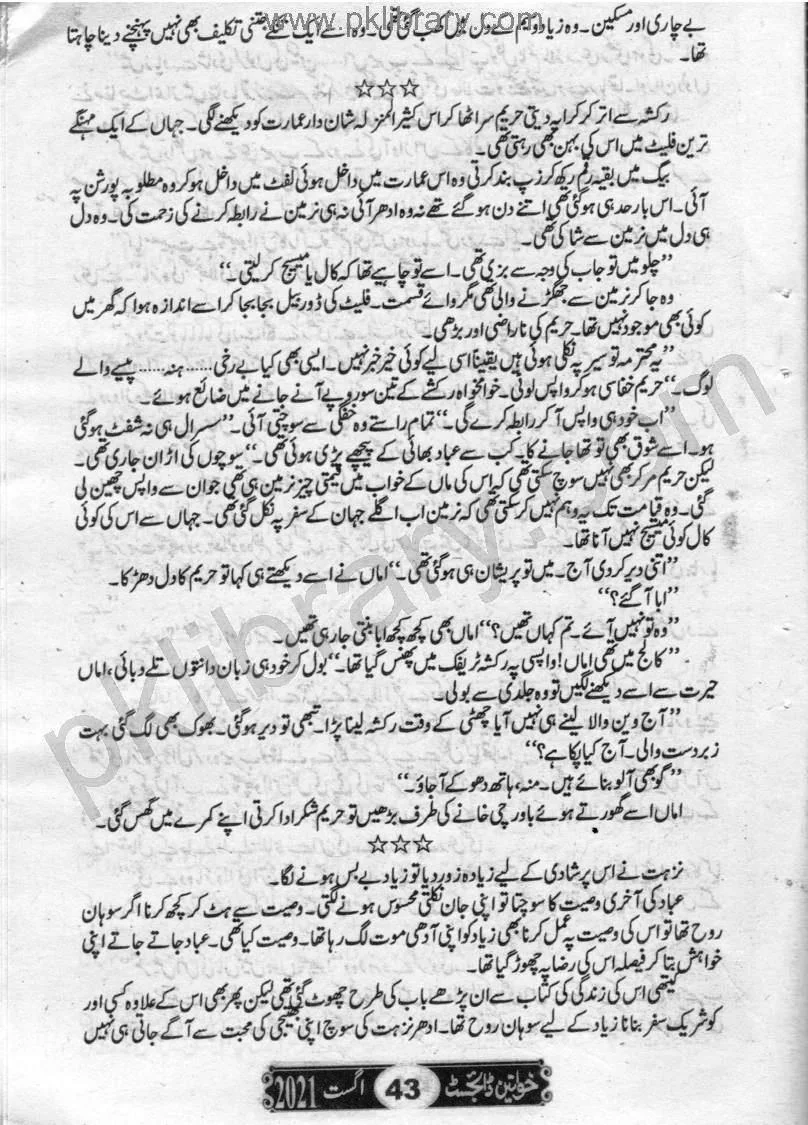 www.pklibrary.com
بے چاری اور مسکین۔ وہ زیاد وہیم کے دن میں کھب گئی تھی۔ وہ اسے ایک تنکے جتنی تکلیف بھی نہیں پہنچنے دینا چاہتا
تھا۔
☆☆☆
رکشہ سے اتر کر کرایہ دیتی حریم سر اٹھا کر اس کثیر المنزلہ شان دار عمارت کو دیکھنے لگی۔ جہاں کے ایک مہنگے
ترین فلیٹ میں اس کی بہن بھی رہتی تھی۔
بیگ میں بقیہ رقم رکھ کر زپ بند کرتی وہ اس عمارت میں داخل ہوئی لفٹ میں داخل ہو کر وہ مطلوبہ پورشن پہ
آئی۔ اس بار حد ہی ہو گئی تھی اتنے دن ہو گئے تھے نہ وہ ادھر آئی نہ ہی نرمین نے رابطہ کرنے کی زحمت کی۔ وہ دل
ہی دل میں نرمین سے شاکی تھی۔
”چلو میں تو جاب کی وجہ سے بزی تھی۔ اسے تو چاہیے تھا کہ کال یا میسج کر لیتی۔“
وہ جا کر نرمین سے جھگڑنے والی تھی مگر وائے قسمت۔ فلیٹ کی ڈور بیل بجا بجا کر اسے اندازہ ہوا کہ گھر میں
کوئی بھی موجود نہیں تھا۔ حریم کی ناراضی اور بڑھی۔
”یہ محترمہ تو سیر پہ نکلی ہوئی ہیں یقیناً اسی لیے کوئی خیر خبر نہیں۔ ایسی بھی کیا بے رخی...... ہنہ...... پیسے والے
لوگ۔“ حریم خفا سی ہو کر واپس لوٹی۔ خوامخواہ رکشے کے تین سو روپے آنے جانے میں ضائع ہوئے۔
”اب خود ہی واپس آ کر رابطہ کرے گی۔“ تمام راستے وہ خفگی سے سوچتی آئی۔ ”سسرال ہی نہ شفٹ ہو گئی
ہو۔ اسے شوق بھی تو تھا جانے کا۔ کب سے عباد بھائی کے پیچھے پڑی ہوئی تھی۔“ سوچوں کی اڑان جاری تھی۔
لیکن حریم مر کر بھی نہیں سوچ سکتی تھی کہ اس کی ماں کے خواب میں قیمتی چیز نرمین ہی تھی جو ان سے واپس چھین لی
گئی۔ وہ قیامت تک یہ وہم نہیں کر سکتی تھی کہ نرمین اب اگلے جہان کے سفر پہ نکل گئی تھی۔ جہاں سے اس کی کوئی
کال کوئی میسج نہیں آنا تھا۔
”اتنی دیر کر دی آج۔ میں تو پریشان ہی ہو گئی تھی۔“ اماں نے اسے دیکھتے ہی کہا تو حریم کا دل دھڑکا۔
”ابا آ گئے؟“
”وہ تو نہیں آئے۔ تم کہاں تھیں؟“ اماں بھی کچھ کچھ ابا بنتی جا رہی تھیں۔
”کالج میں تھی اماں! واپسی پہ رکشہ ٹریفک میں پھنس گیا تھا۔“ بول کر خود ہی زبان دانتوں تلے دبائی، اماں
حیرت سے اسے دیکھنے لگیں تو وہ جلدی سے بولی۔
”آج وین والا لینے ہی نہیں آیا چھٹی کے وقت رکشہ لینا پڑا۔ تبھی تو دیر ہو گئی۔ بھوک بھی لگ گئی بہت
زبردست والی۔ آج کیا پکا ہے؟“
”گوبھی آلو بنائے ہیں۔ منہ، ہاتھ دھو کے آ جاؤ۔“
اماں اسے گھورتے ہوئے باورچی خانے کی طرف بڑھیں تو حریم شکر ادا کرتی اپنے کمرے میں گھس گئی۔
☆☆☆
نزہت نے اس پر شادی کے لیے زیادہ زور دیا تو زیاد بے بس ہونے لگا۔
عباد کی آخری وصیت کا سوچتا تو اپنی جان نکلتی محسوس ہونے لگتی۔ وصیت سے ہٹ کر کچھ کرنا اگر سوہان
روح تھا تو اس کی وصیت پہ عمل کرنا بھی زیاد کو اپنی آدھی موت لگ رہا تھا۔ وصیت کیا تھی۔ عباد جاتے جاتے اپنی
خواہش بتا کر فیصلہ اس کی رضا پہ چھوڑ گیا تھا۔
گیتھی اس کی زندگی کی کتاب سے ان پڑھے باب کی طرح چھوٹ گئی تھی لیکن پھر بھی اس کے علاوہ کسی اور
کو شریک سفر بنانا زیاد کے لیے سوہان روح تھا۔ ادھر نزہت کی سوچ اپنی بھتیجی کی محبت سے آگے جاتی ہی نہیں
خواتین ڈائجسٹ 43 اگست 2021
pklibrary.com